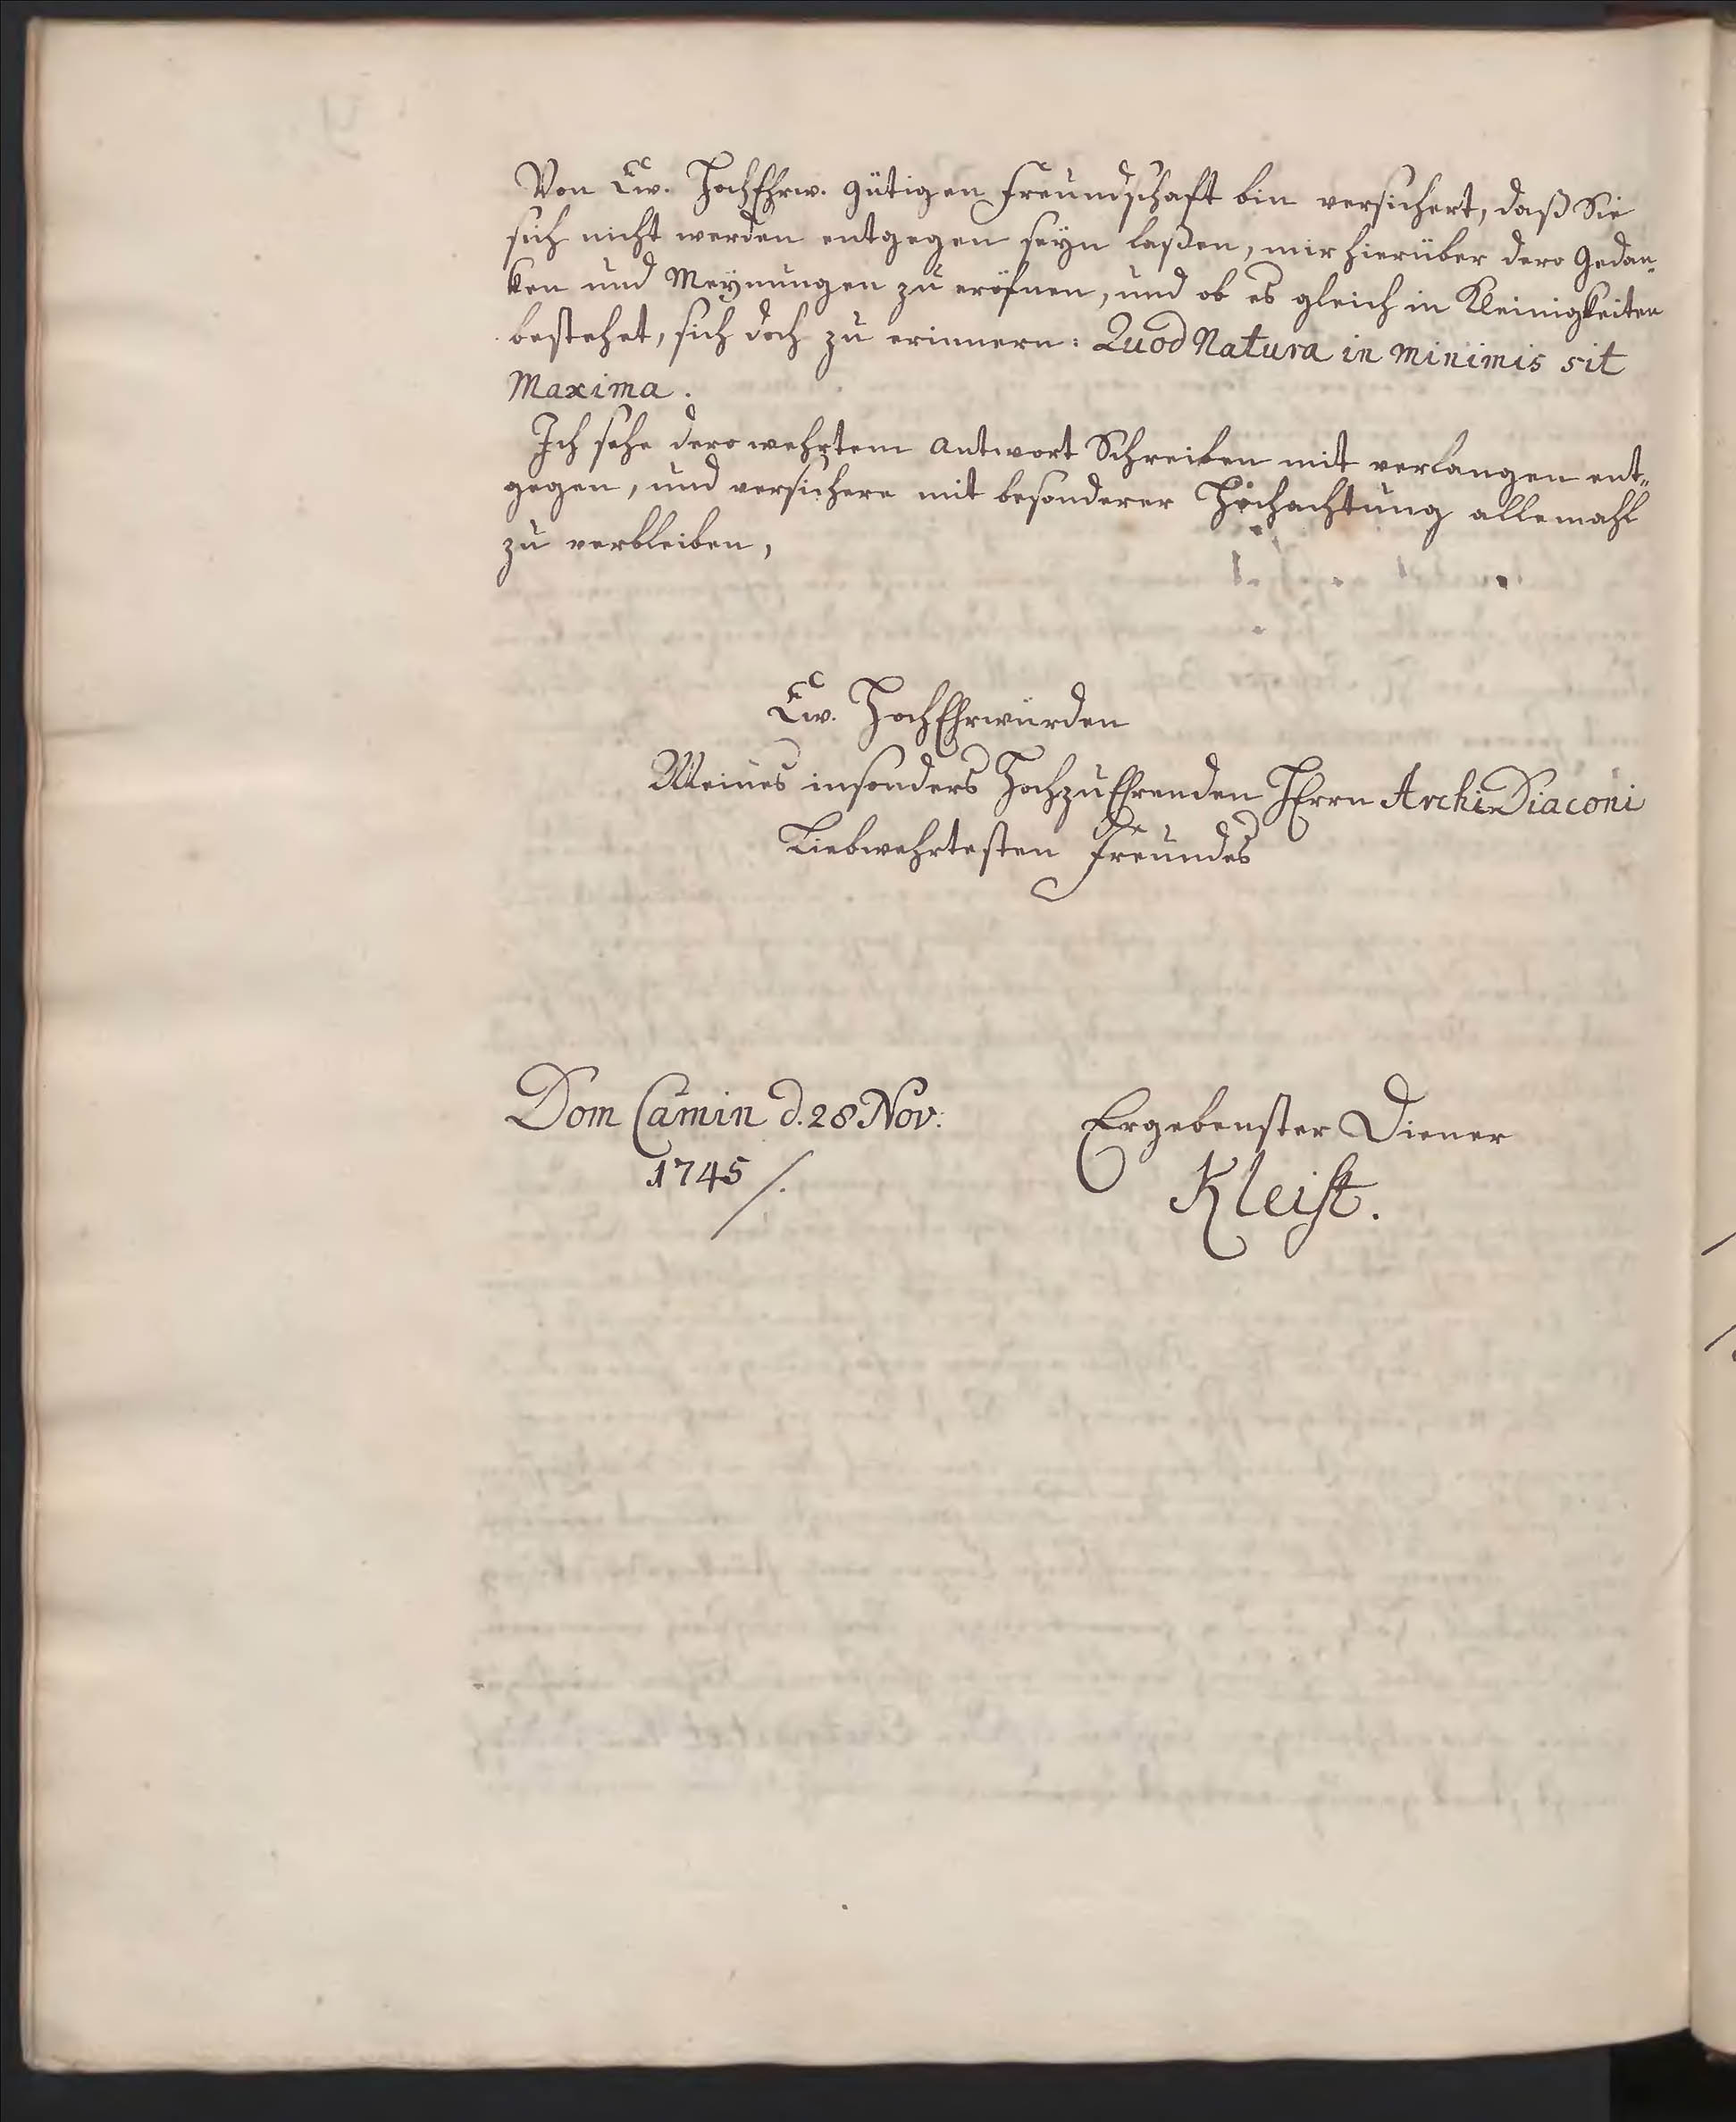 Von Ew. HochEhrw. gütigen Freundschaft bin versichert, daß Sie
sich nicht werden entgegen seyn laßen, mir hierüber dero Gedan-
ken und Meynungen zu eröfnen, und ob es gleich in Kleinigkeiten
bestehet, sich doch zu erinnern: Quod Natura in minimis sit
Maxima.
Ich sehe dero wehrtem Antwort Schreiben mit verlangen ent-
gegen, und versichere mit besonderer Hochachtung allemahl
zu verbleiben,
Ew. HochEhrwürden
Meines insonders HochzuEhrenden HErrn ArchiDiaconi
Liebwehrtesten Freundes
Dom Camin d. 28 Nov:
1745 /.
Ergebenster Diener
Kleist.